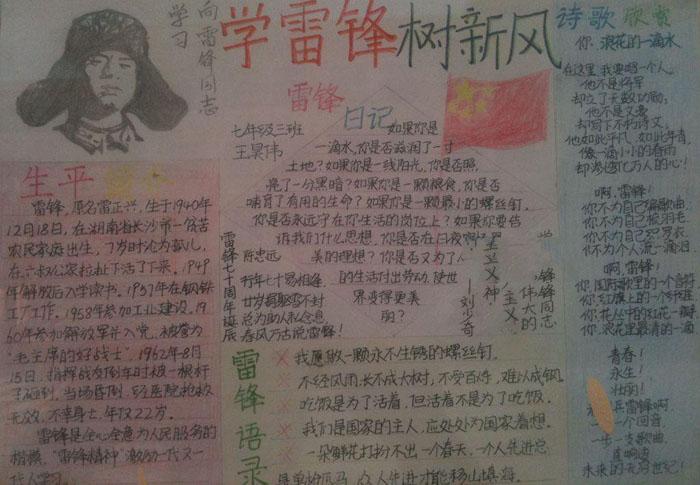 向雷锋同志
学习
学雷锋 树新风
生平简介
雷锋,原名雷正兴,生于1940年
12月18日,在湖南省长沙市一贫苦
农民家庭出生,7岁时沦为孤儿,
在六叔公家拉扯下活了下来。1949
年解放后入学读书。1957年在钢铁
工厂工作。1958年参加工业建设。19
60年参加解放军并入党,被誉为
“毛主席的好战士”,1962年8月
15日,指挥战友倒车时被一根杆
子砸到,当场昏倒,经医院抢救
无效,不幸身亡,年仅22岁。
雷锋是全心全意为人民服务的
楷模,“雷锋精神”激励一代又一
代人学习。
雷锋
日记
七年级三班
王昊伟
如果你是
一滴水,你是否滋润了一寸
土地?如果你是一线阳光,你是否照
亮了一分黑暗?如果你是一颗粮食,你是否
哺育了有用的生命?如果你是一颗最小的螺丝钉,
你是否永远守在你生活的岗位上?如果你要告
诉我们什么思想,你是否在日夜
美的理想?你是否又为了
的生活付出劳动,使世
界变得更美
丽?
雷锋七十周年诞辰
陈忠远
行年七十易相逢
廿岁
总为助人私念息
春风万古说雷锋!
主义
神
——刘少奇
锋同志
伟大的
主义
雷锋语录
× 我愿做一颗永不生锈的螺丝钉.
不经风雨,长不成大树,不受百炼,难以成钢.
× 吃饭是为了活着,但活着不是为了吃饭。
× 我们是国家的主人,应处处为国家着想。
× 一朵鲜花打扮不出一个春天,一个人先进总
是单枪匹马,众人先进才能移山填海。
诗歌欣赏
你,浪花的一滴水
在这里,我要唱一个人,
他不是将军
却立了无数功勋;
他不是文豪
却写下不朽诗文;
他如此平凡,如此年青,
像一滴小小的春雨
却渗透亿万人的心!
啊,雷锋!
你不为自己编歌曲,
你不为自己披羽毛
你不为自己织罗衣
你不为个人流一滴泪
啊,雷锋!
你,国际歌里的一个音符
你,红旗上的一个纤维
你,花丛中的花一瓣
你,浪花里最清的一滴
青春!
永生!
壮丽!
兵雷锋啊,
一个回音,
一步一支歌曲,
直响遍
未来的无穷世纪!